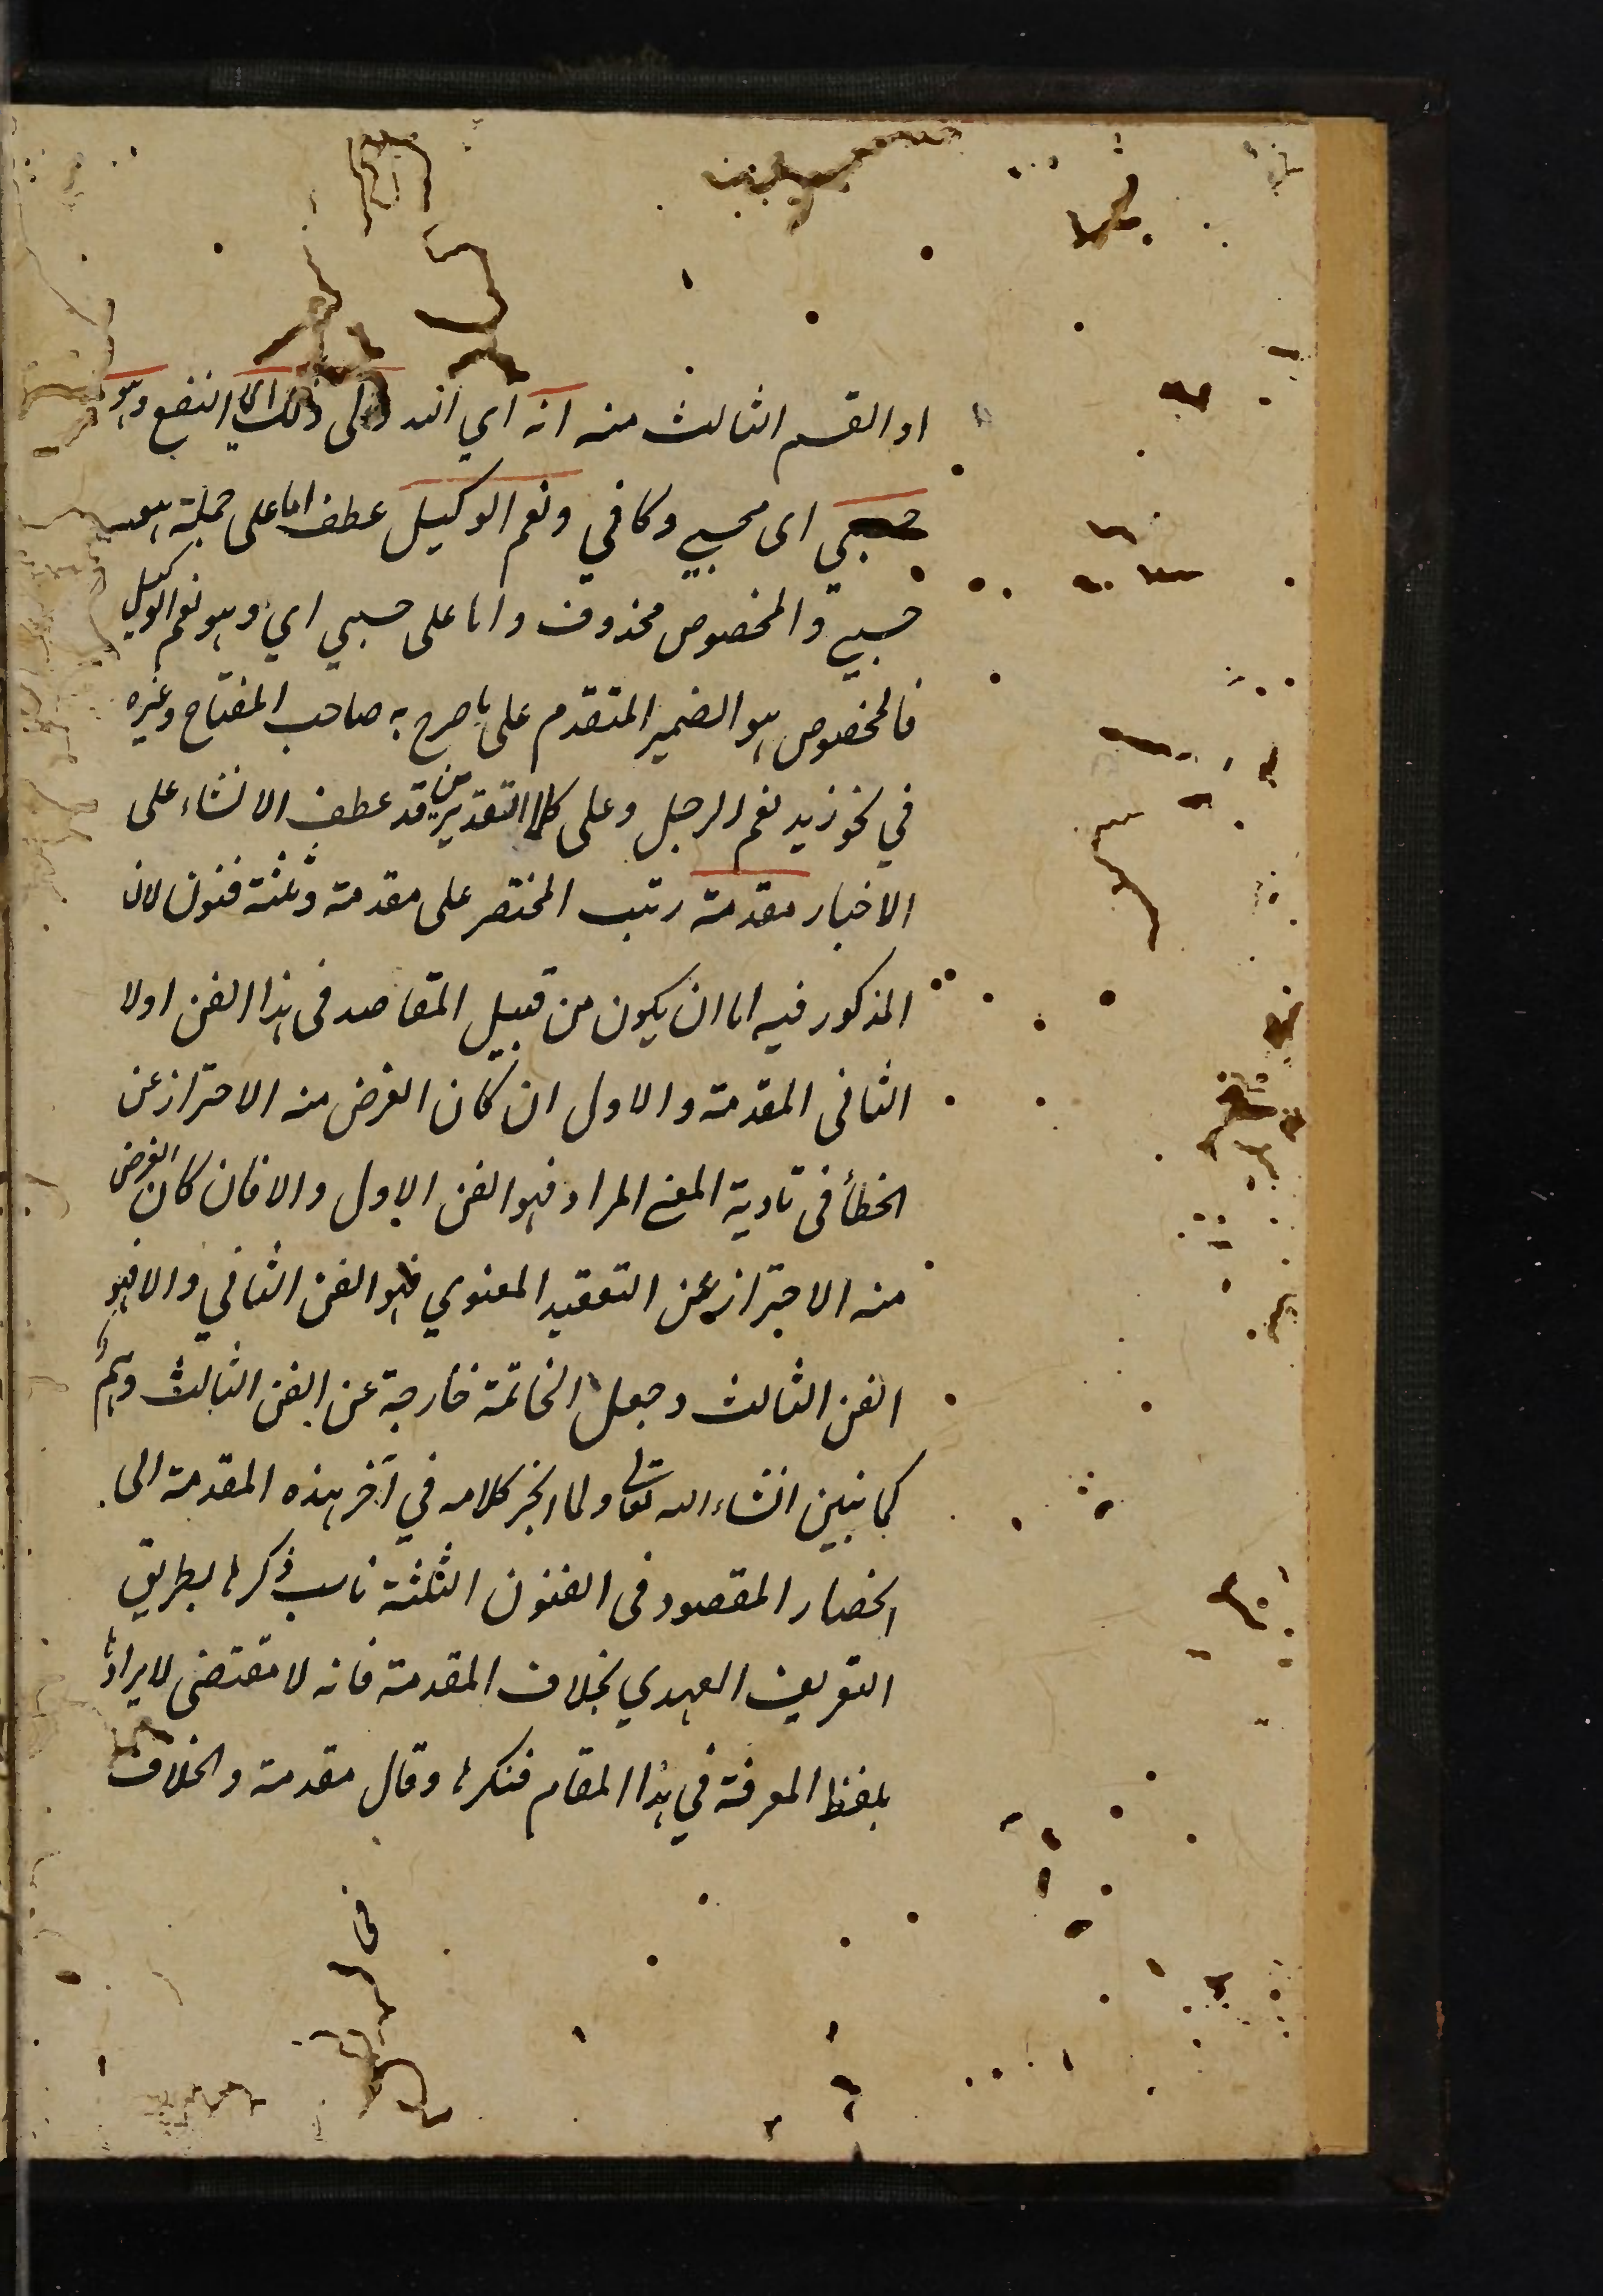 او القسم الثالث منه انه اي الله ولى ذلك اي النفع وهو
حسبي اى محسبي وكافي ونعم الوكيل عطف اما على جملة هو
حسبي والمخصوص محذوف واما على حسبي اي وهو نعم الوكيل
فالمخصوص هو الضمير المتقدم على ما صرح به صاحب المفتاح وغيره
في نحو زيد نعم الرجل وعلى كلا التقديرين قد عطف الانشاء على
الاخبار مقدمة رتب المختصر على مقدمة وثلثة فنون لان
المذكور فيه اما ان يكون من قبيل المقاصد فى هذا الفن اولا
الثانى المقدمة والاول ان كان الغرض منه الاحتراز عن
الخطأ فى تادية المعنى المراد فهو الفن الاول والا فان كان الغرض
منه الاحتراز عن التعقيد المعنوي فهو الفن الثاني والا فهو
الفن الثالث وجعل الخاتمة خارجة عن الفن الثالث وهم
كما نبين انشاء الله تعالى ولما انجر كلامه في آخر هذه المقدمة الى
انحصار المقصود فى الفنون الثلثة ناسب ذكرها بطريق
التعريف العهدي بخلاف المقدمة فانه لا مقتضى لايرادها
بلفظ المعرفة في هذا المقام فنكرها وقال مقدمة والخلاف
فى